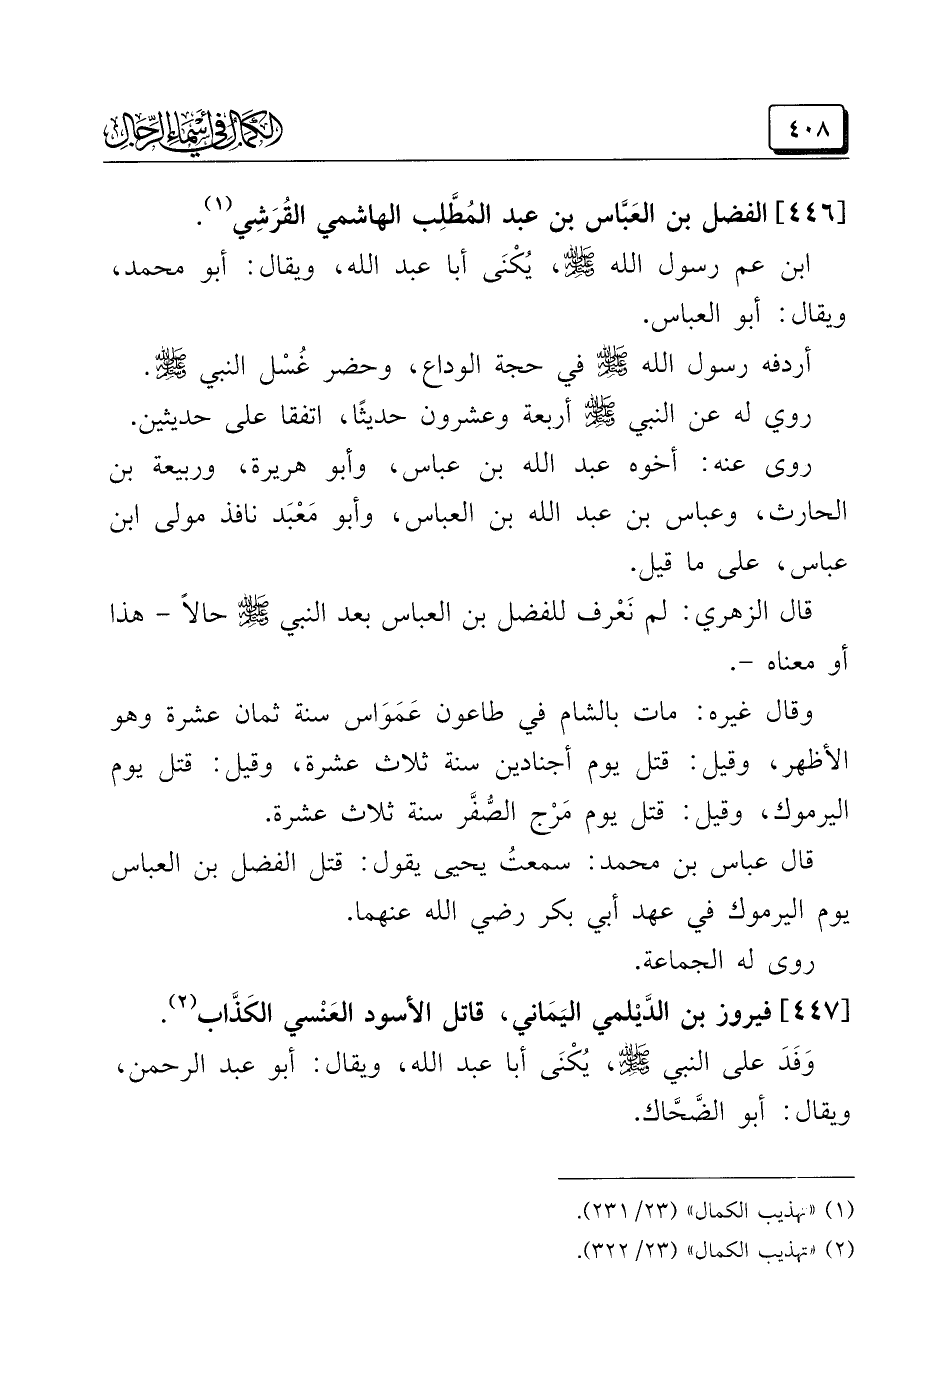 الكمال في أسماء الرجال
٤٠٨
[٤٤٦] الفضل بن العَبَّاس بن عبد المُطَّلِب الهاشمي القُرَشِي(١).
ابن عم رسول الله ﷺ، يُكْنَى أبا عبد الله، ويقال: أبو محمد،
ويقال: أبو العباس.
أردفه رسول الله ﷺ في حجة الوداع، وحضر غُسْل النبي ﷺ.
روي له عن النبي ﷺ أربعة وعشرون حديثًا، اتفقا على حديثين.
روى عنه: أخوه عبد الله بن عباس، وأبو هريرة، وربيعة بن
الحارث، وعباس بن عبد الله بن العباس، وأبو مَعْبَد نافذ مولى ابن
عباس، على ما قيل.
قال الزهري: لم نَعْرف للفضل بن العباس بعد النبي ﷺ حالاً - هذا
أو معناه -.
وقال غيره: مات بالشام في طاعون عَمَوَاس سنة ثمان عشرة وهو
الأظهر، وقيل: قتل يوم أجنادين سنة ثلاث عشرة، وقيل: قتل يوم
اليرموك، وقيل: قتل يوم مَرْج الصُّفَّر سنة ثلاث عشرة.
قال عباس بن محمد: سمعتُ يحيى يقول: قتل الفضل بن العباس
يوم اليرموك في عهد أبي بكر رضي الله عنهما.
روى له الجماعة.
[٤٤٧] فيروز بن الدَّيْلمي اليَماني، قاتل الأسود العَنْسي الكَذَّاب(٢).
وَفَدَ على النبي ﷺ، يُكْنَى أبا عبد الله، ويقال: أبو عبد الرحمن،
ويقال: أبو الضَّحَّاك.
(١) «تهذيب الكمال» (٢٣/ ٢٣١).
(٢) «تهذيب الكمال» (٢٣/ ٣٢٢).